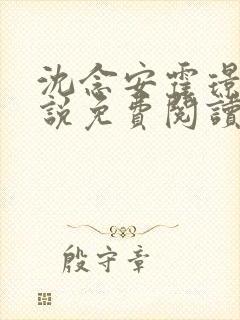 沈念安霆璟
說免費閱讀
殷守章